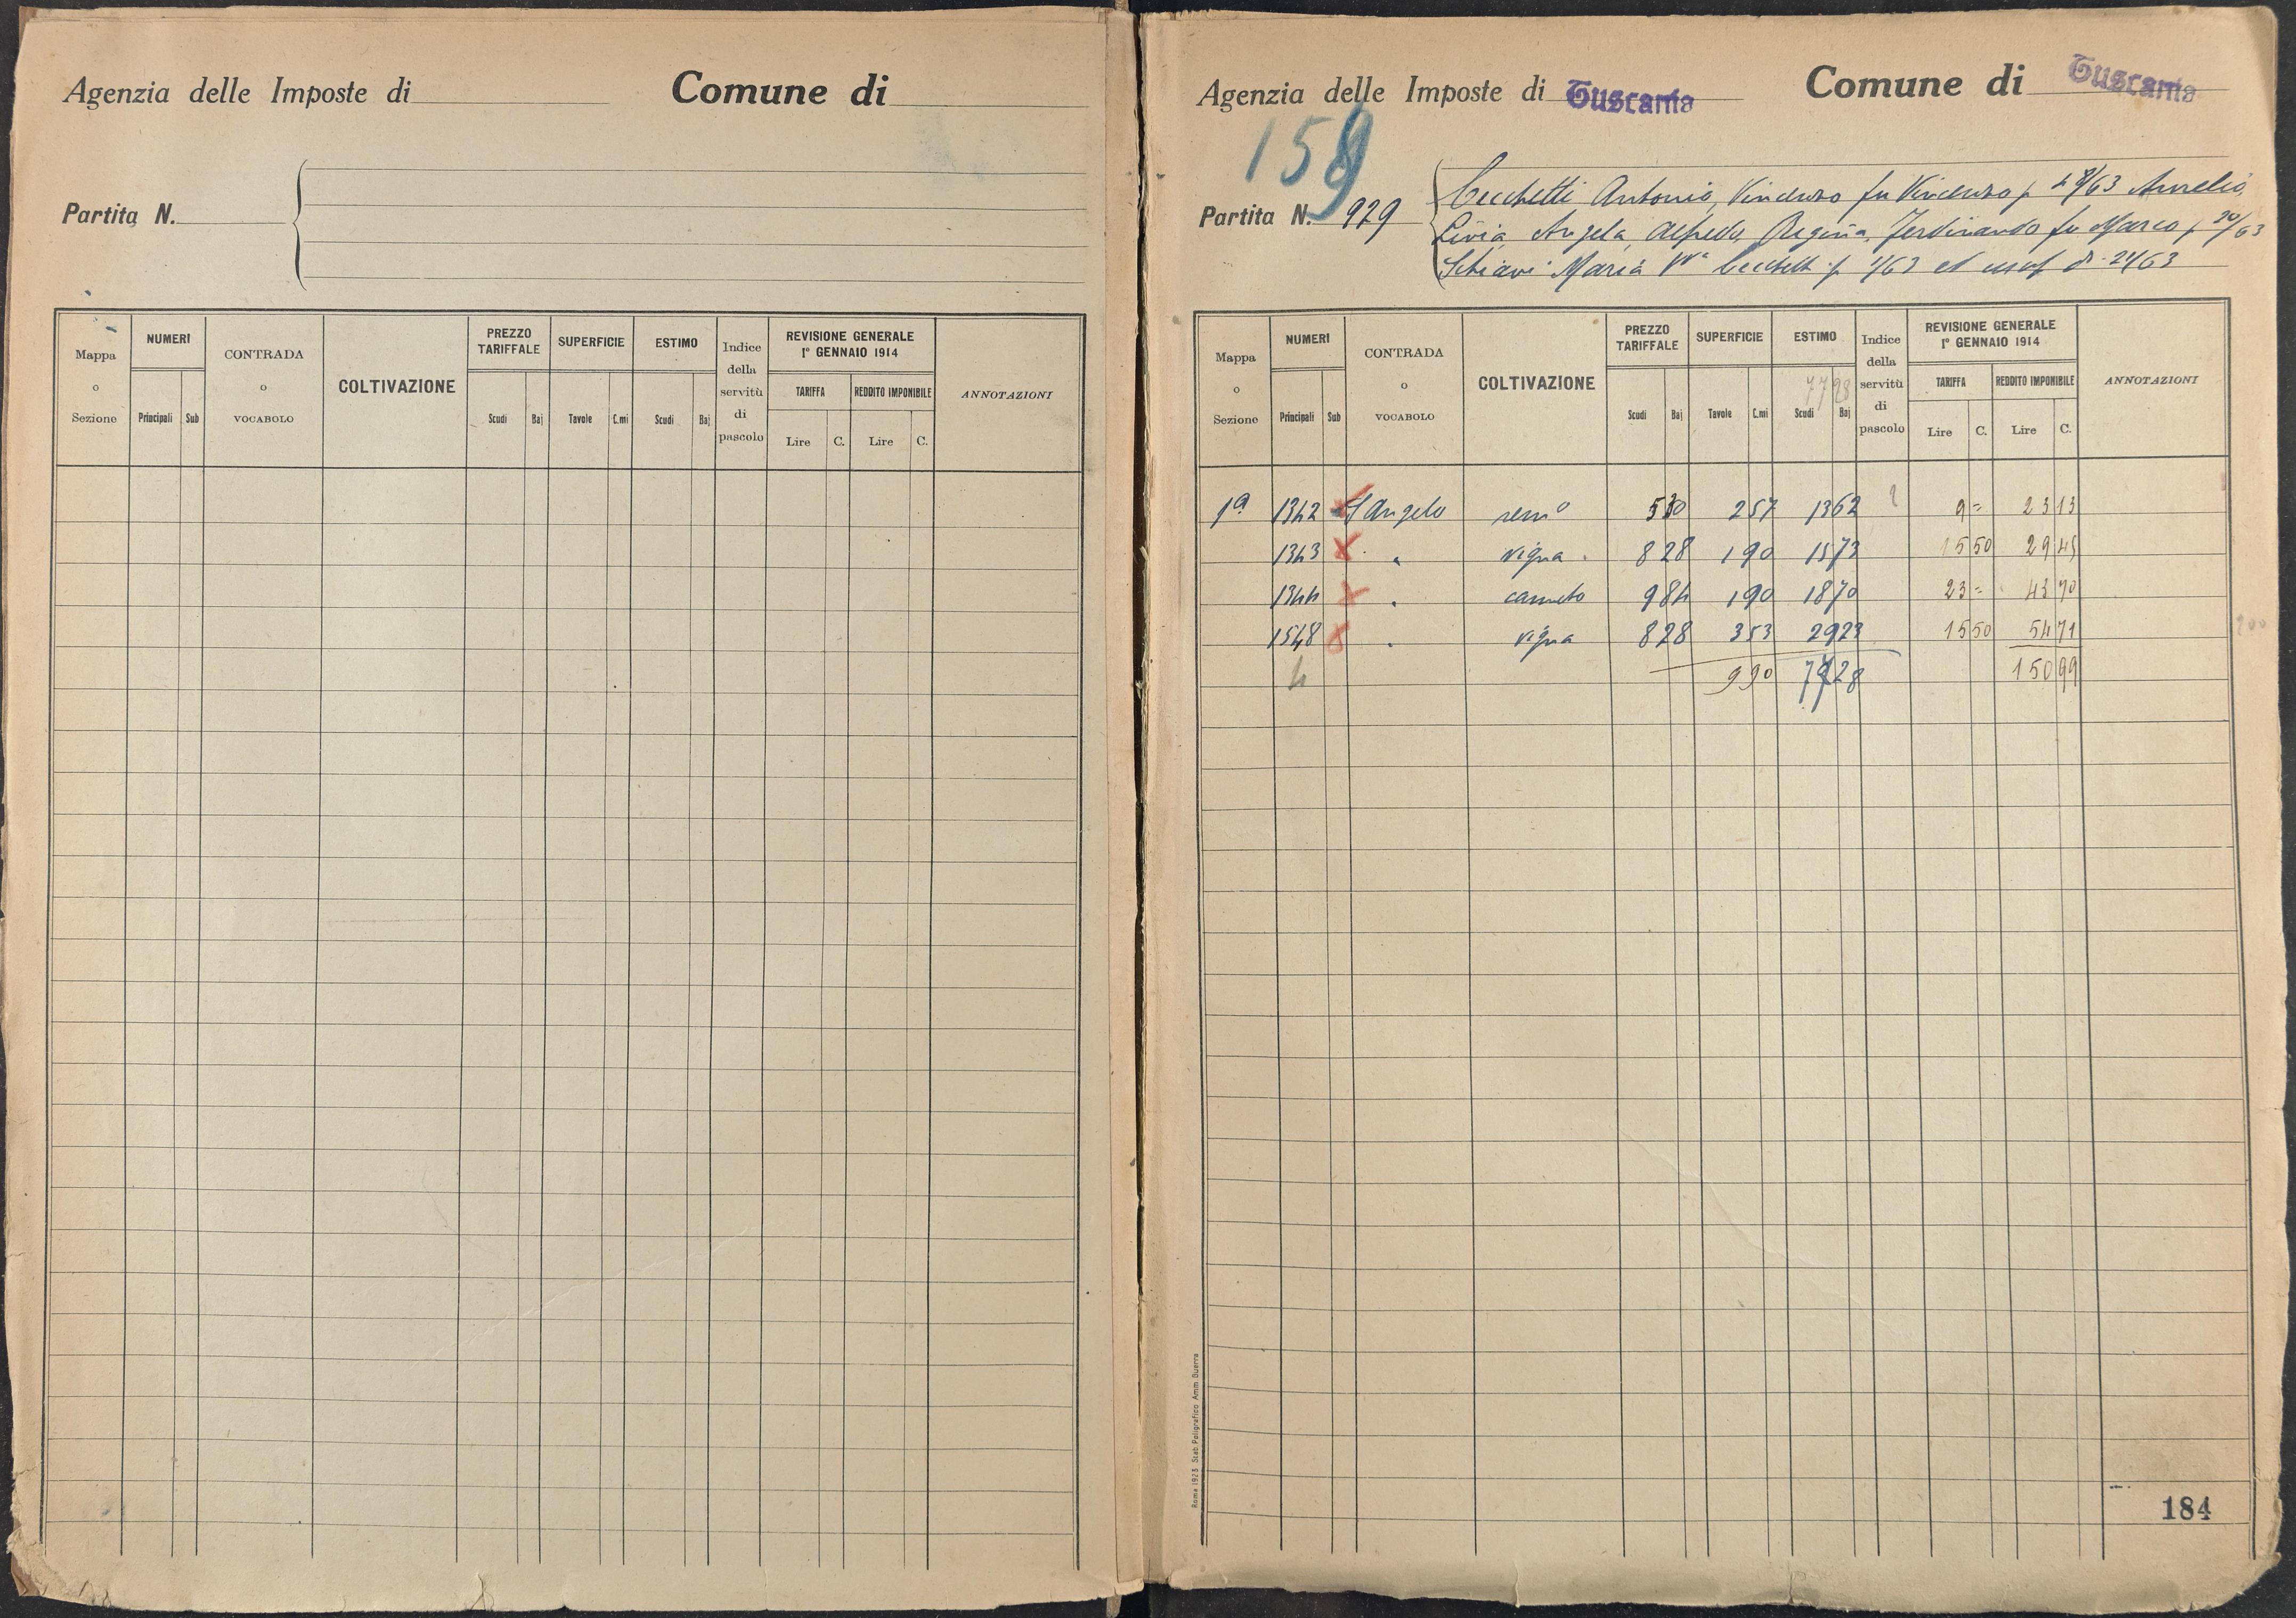 Agenzia delle Imposte di Comune di
Partita N.
Mappa o Sezione NUMERI Principali Sub CONTRADA o VOCABOLO COLTIVAZIONE PREZZO TARIFFALE Scudi Baj SUPERFICIE Tavole C.mi ESTIMO Scudi Baj Indice della servitù di pascolo REVISIONE GENERALE 1° GENNAIO 1914 TARIFFA Lire C. REDDITO IMPONIBILE Lire C. ANNOTAZIONI
Agenzia delle Imposte di Tuscania Comune di Tuscania
159
Partita N. 929
Cecchetti Antonio, Vincenzo fu Vincenzo p 28/63 Aurelio,
Livia, Angela, Alfredo, Regina, Ferdinando fu Marco p 20/63
Schiavi Maria Va Cecchetti p 1/63 ed usuf di 24/63
Mappa o Sezione NUMERI Principali Sub CONTRADA o VOCABOLO COLTIVAZIONE PREZZO TARIFFALE Scudi Baj SUPERFICIE Tavole C.mi ESTIMO Scudi Baj Indice della servitù di pascolo REVISIONE GENERALE 1° GENNAIO 1914 TARIFFA Lire C. REDDITO IMPONIBILE Lire C. ANNOTAZIONI
7728
1a 1342 S Angelo semo 530 257 1362 9 = 23 13
1343 " vigna 828 190 1573 15 50 29 45
1344 " canneto 984 190 1870 23 = 43 70
1548 " vigna 828 353 2923 15 50 54 71
4 990 7728 150 99
Roma 1923 Stab. Poligrafico Amm. Guerra
184